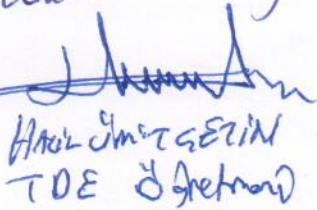 Halil Ümit ÇETİN
TDE Öğretmeni